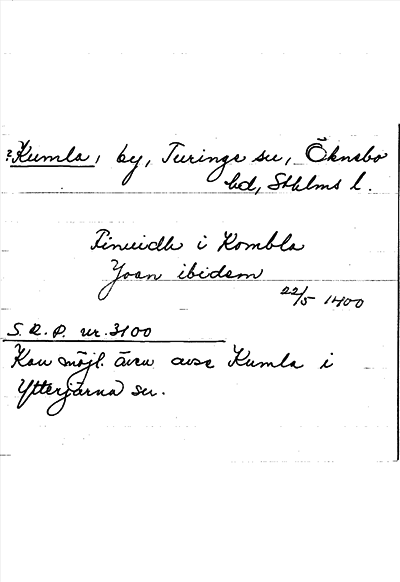 ? Kumla, by, Turinge sn, Öknebo
hd, Sthlms l.
Finuidh i Kombla
Joan ibidem
22/5 1400
S.R.P. nr. 3100
Kan möjl. även avse Kumla i
Ytterjärna sn.